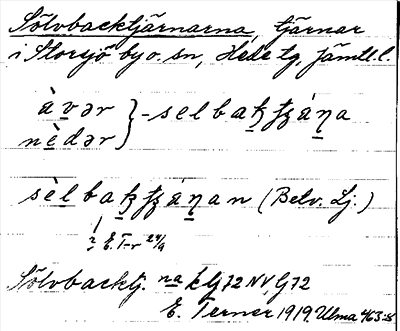 Sölvbacktjärnarna, tjärnar
i Storsjö by o. sn, Hede tg, Jämtl. l.
àvər } -selbaꞣʓána
nèdər
sèlbaꞣʓánan (Belv. Lj.)
E. T-r 24/9
Sölvbacktj. na k G72 NV, G72
E. Terner 1919. Ulma 463:5